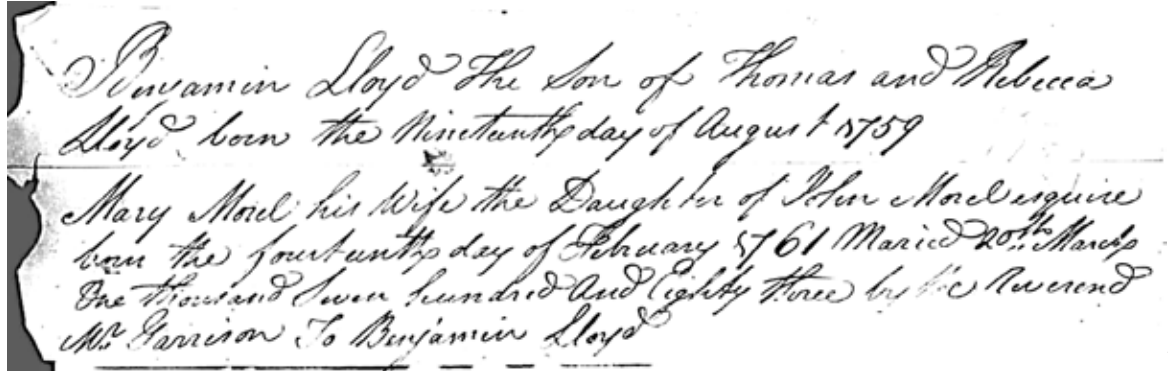 Benjamin Lloyd The Son of Thomas and Rebecca
Lloyd born the Nineteenth day of August 1759
Mary Morel his Wife the Daughter of John Morel esquire
born the fourteenth day of February 1761 Maried 20th March
One thousand Seven hundred And Eighty three by the Reverend
Mr. Garrison To Benjamin Lloyd